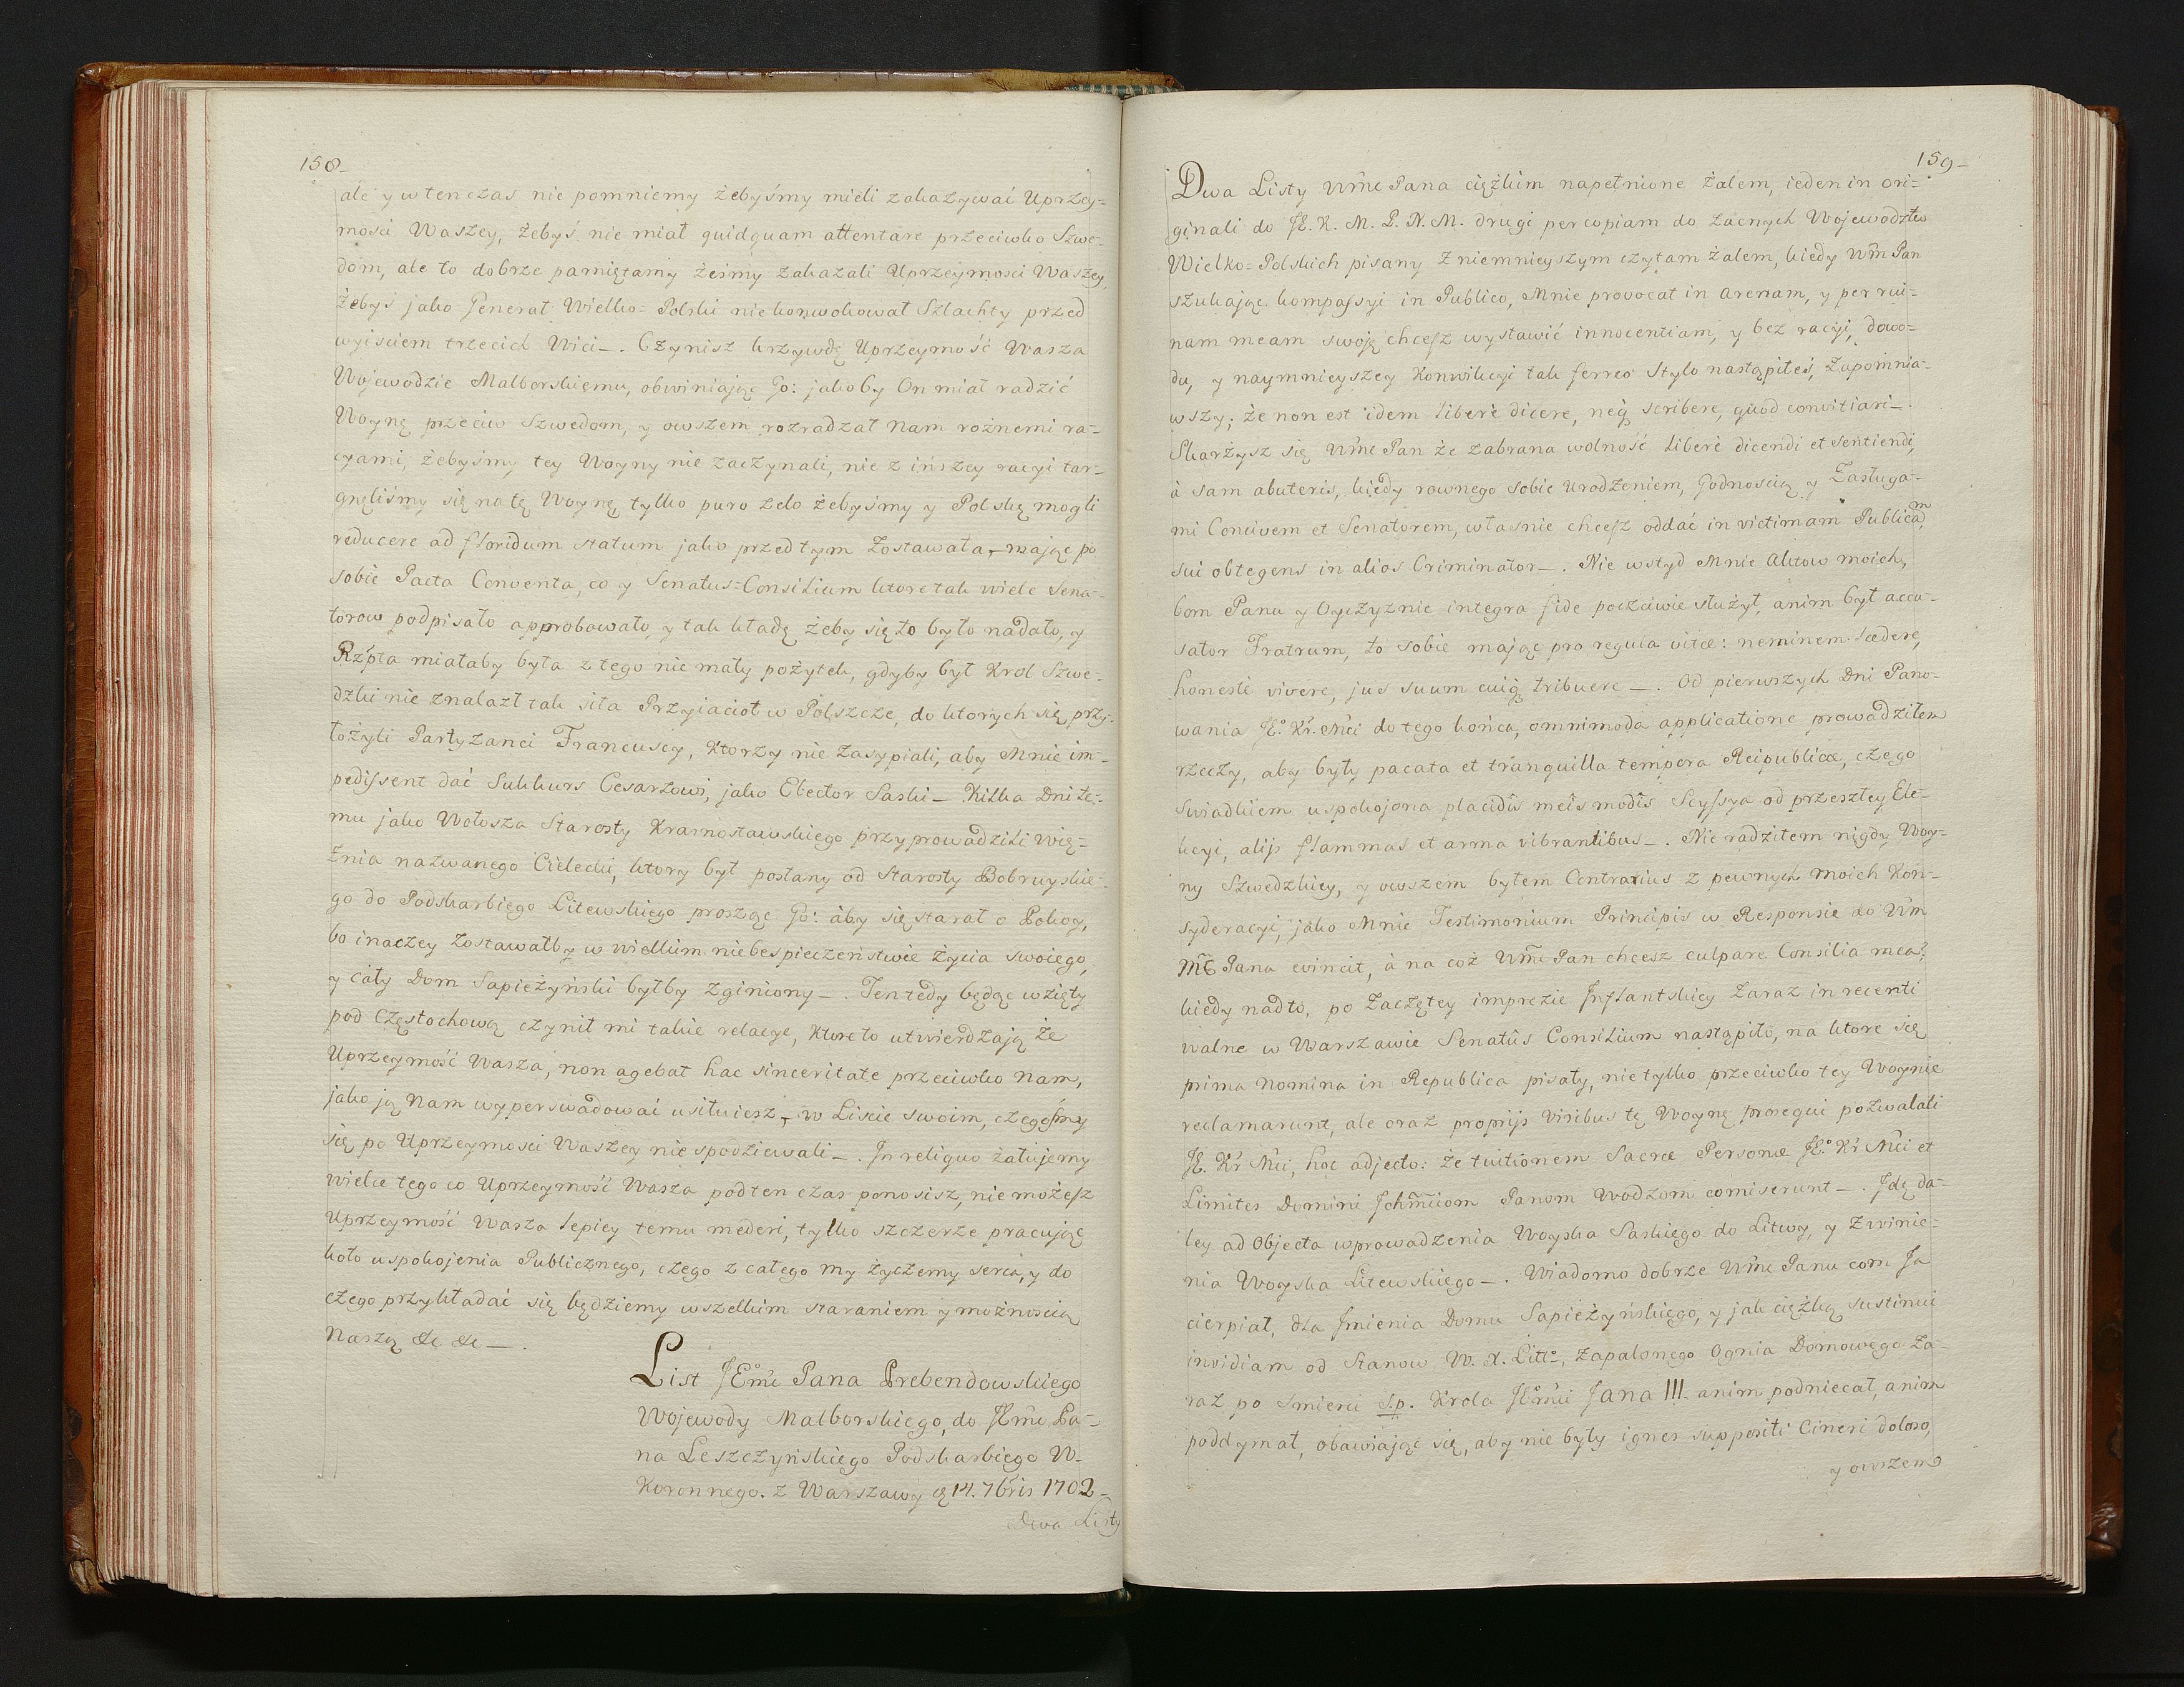 158_
ale y w ten czas nie pomniemy żebyśmy mieli zakazywać Uprzey=
mości Waszey, żebyś nie miał quidquam attentare przeciwko Szwe=
dom, ale to dobrze pamiętamy żeśmy zakazali Uprzeymości Waszey,
żebyś jako Generał Wielko=Polski nie konwokował Szlachty przed
wyiściem trzecich Wici_. Czynisz krzywdę Uprzeymość Wasza
Wojewodzie Malborskiemu, obwiniając Go: jakoby On miał radzić
Woynę przeciw Szwedom, y owszem rozradzał Nam rożnemi ra=
cyami, żebyśmy tey Woyny nie zaczynali, nie z inszey racyi tar=
gnęliśmy się na tę Woynę, tylko puro zelo żebyśmy y Polskę mogli
reducere ad floridum statum jako przed tym zostawała, mając po
sobie Pacta Conventa, co y Senatus=Consilium ktore tak wiele Sena=
torow podpisało approbowało, y tak kładę żeby się to było nadało, y
Rzpta miałaby była z tego nie mały pożytek, gdyby był Krol Szwe=
dzki nie znalazł tak siła Przyiacioł w Polszcze, do ktorych się przy=
łożyli Partyzanci Francuscy, Ktorzy nie zasypiali, aby Mnie im=
pedissent dać Sukkurs Cesarzowi, jako Elector Saski_ Kilka Dni te=
mu jako Wołosza Starosty Krasnostawskiego przyprowadzili Wię=
źnia nazwanego Cielecki, ktory był posłany od Starosty Bobruyskie=
go do Podskarbiego Litewskiego prosząc Go: aby się starał o Pokoy,
bo inaczey zostawałby w wielkim niebespieczeństwie życia swoiego,
y cały Dom Sapieżyński byłby zginiony_. Ten tedy będąc wzięty
pod Częstochową czynił mi takie relacye, Ktore to utwierdzają że
Uprzeymość Wasza, non agebat hac sinceritate przeciwko Nam,
jako ją Nam wyperswadować usiłuiesz, w Liscie swoim, czegośmy
się po Uprzeymości Waszey nie spodziewali_. In reliquo żałujemy
wielce tego co Uprzeymość Wasza pod ten czas ponosisz, nie możesz
Uprzeymość Wasza lepiey temu mederi, tylko szczerze pracując
koło uspokojenia Publicznego, czego z całego my życzemy serca, y do
czego przykładać się będziemy wszelkim staraniem y możnością
Naszą &c &c_.
List JEmc Pana Prebendowskiego
Wojewody Malborskiego, do JEmc Pa=
na Leszczyńskiego Podskarbiego W.
Koronnego. z Warszawy 14. 7bris 1702_
Dwa Listy
159_
Dwa Listy Wmc Pana ciężkim napełnione żalem, ieden in ori=
ginali do JE. K. M. P. N. M. drugi per copiam do zacnych Wojewodztw
Wielko=Polskich pisany z niemnieyszym czytam żalem, kiedy Wm Pan
szukając kompassyi in Publico, Mnie provocat in arenam, y per rui=
nam meam swoję chcesz wystawić innocentiam, y bez racyi, dowo=
du, y naymnieyszey Konwikcyi tak ferreo stylo nastąpiłeś, zapomnia=
wszy; że non est idem liberè dicere, neq scribere, quod convitiari_.
Skarżysz się Wmc Pan że zabrana wolność liberè dicendi et sentiendi,
à sam abuteris, kiedy rownego sobie urodzeniem, Godnością y Zasługa=
mi Concivem et Senatorem, własnie chcesz oddać in victimam Publicam
sui obtegens in alios Criminator_. Nie wstyd Mnie aktow moich,
bom Panu y Oyczyznie integra fide poczciwie służył, anim był accu=
sator Fratrum, to sobie mając pro regula vitæ: neminem lædere,
honestè vivere, jus suum cuiq tribuere_. Od pierwszych Dni Pano=
wania JEo Kr. Mci do tego końca, omnimoda applicatione prowadziłem
rzeczy, aby były pacata et tranquilla tempora Reipublicæ, czego
Swiadkiem uspokojona placidis meis modis Scyssya od przeszłey Ele=
kcyi, alijs flammas et arma vibrantibus_. Nie radziłem nigdy Woy=
ny Szwedzkiey, y owszem byłem Contrarius z pewnych moich Kon=
syderacyi, jako Mnie Testimonium Principis w Responsie do Wm
Mc Pana evincit, à na coż Wmc Pan chcesz culpare Consilia mea?
kiedy nadto, po zaczętey imprezie Inflantskiey zaraz in recenti
walne w Warszawie Senatûs Consilium nastąpiło, na ktore się
prima Nomina in Republica pisały, nie tylko przeciwko tey Woynie
reclamarunt, ale oraz proprijs viribus tę Woynę prosequi pozwalali
JE. Kr Mci, hoc adjecto: że tuitionem Sacræ Personæ JEo Kr Mci et
Limites Dominii Ichmciom Panom Wodzom comiserunt_. Idę da=
ley ad Objecta wprowadzenia Woyska Saskiego do Litwy, y zwinie=
nia Woyska Litewskiego_. Wiadomo dobrze Wmc Panu com Ja
cierpiał, dla Imienia Domu Sapieżyńskiego, y jak ciężką sustinui
invidiam od Stanow W. X. Litto, zapalonego Ognia Domowego za=
raz po smierci s.p. Krola JEmci Jana III. anim podniecał, anim
poddymał, obawiając się, aby nie były ignes suppositi Cineri doloso,
y owszem